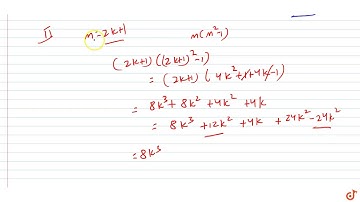 II n = 2k+1 n(n²-1)
(2k+1)((2k+1)²-1)
= (2k+1)(4k²+1+4k-1)
= 8k³+8k²+4k²+4k
= 8k³+12k²+4k+24k²-24k²
= 8k³